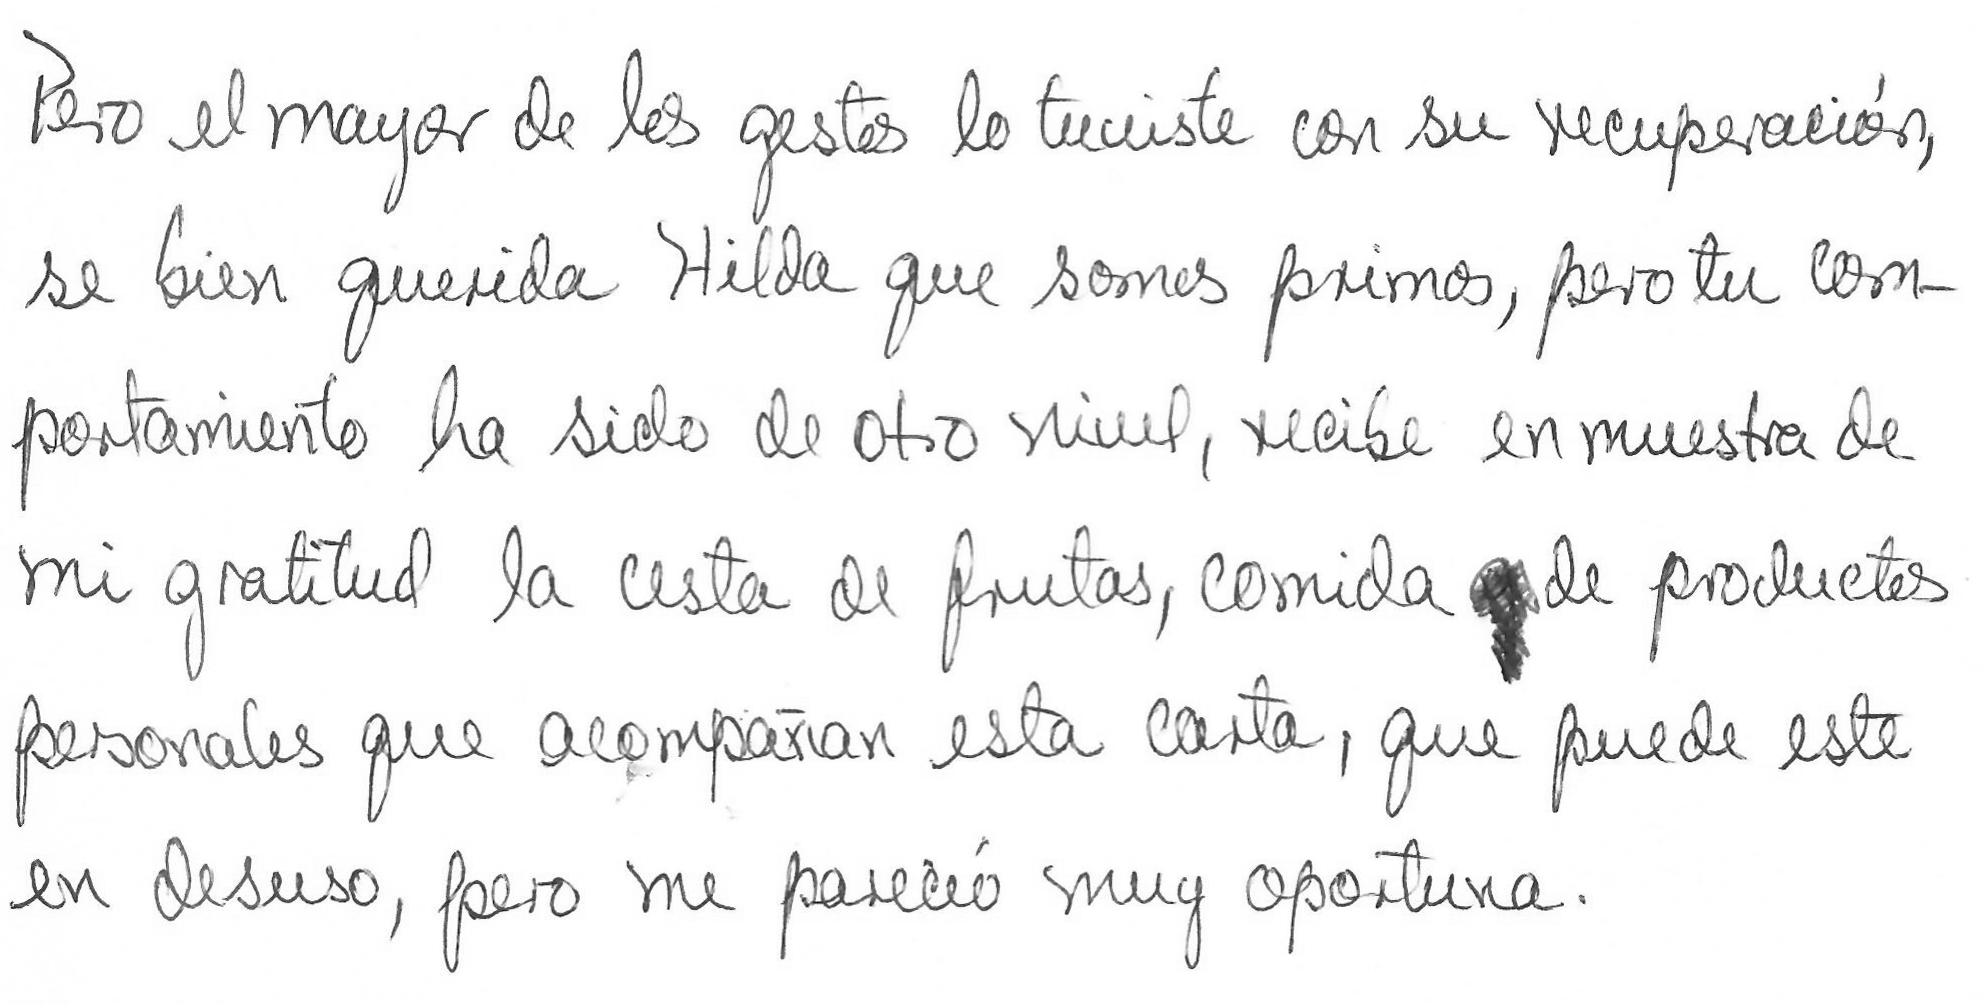 Pero el mayor de los gestos lo tuviste con su recuperación,
se bien querida Hilda que somos primos, pero tu com-
portamiento ha sido de otro nivel, recibe en muestra de
mi gratitud la cesta de frutas, comida de productos
personales que acompañan esta carta, que puede este
en desuso, pero me pareció muy oportuna.